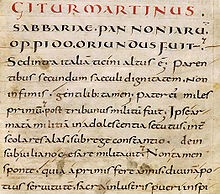 GITUR MARTINUS
SABBARIAE·PANNONIARU
OPPIDO·ORIUNDUS FUIT·
Sed intra italia ticini altus ē; Paren
tibus secundum saeculi dignitatem. Non
infimis, gentilib; tamen; Pater ei miles
primū post tribunus militū fuit; Ipse ar
mata militia in adolescentia secutus, int
scolares alas, sub rege constantio, de
in sub iuliano cęsare militavit; Non tamen
sponte, quia a primis ferē annis, divinam
servitute, sacra inlustris pueri inspi